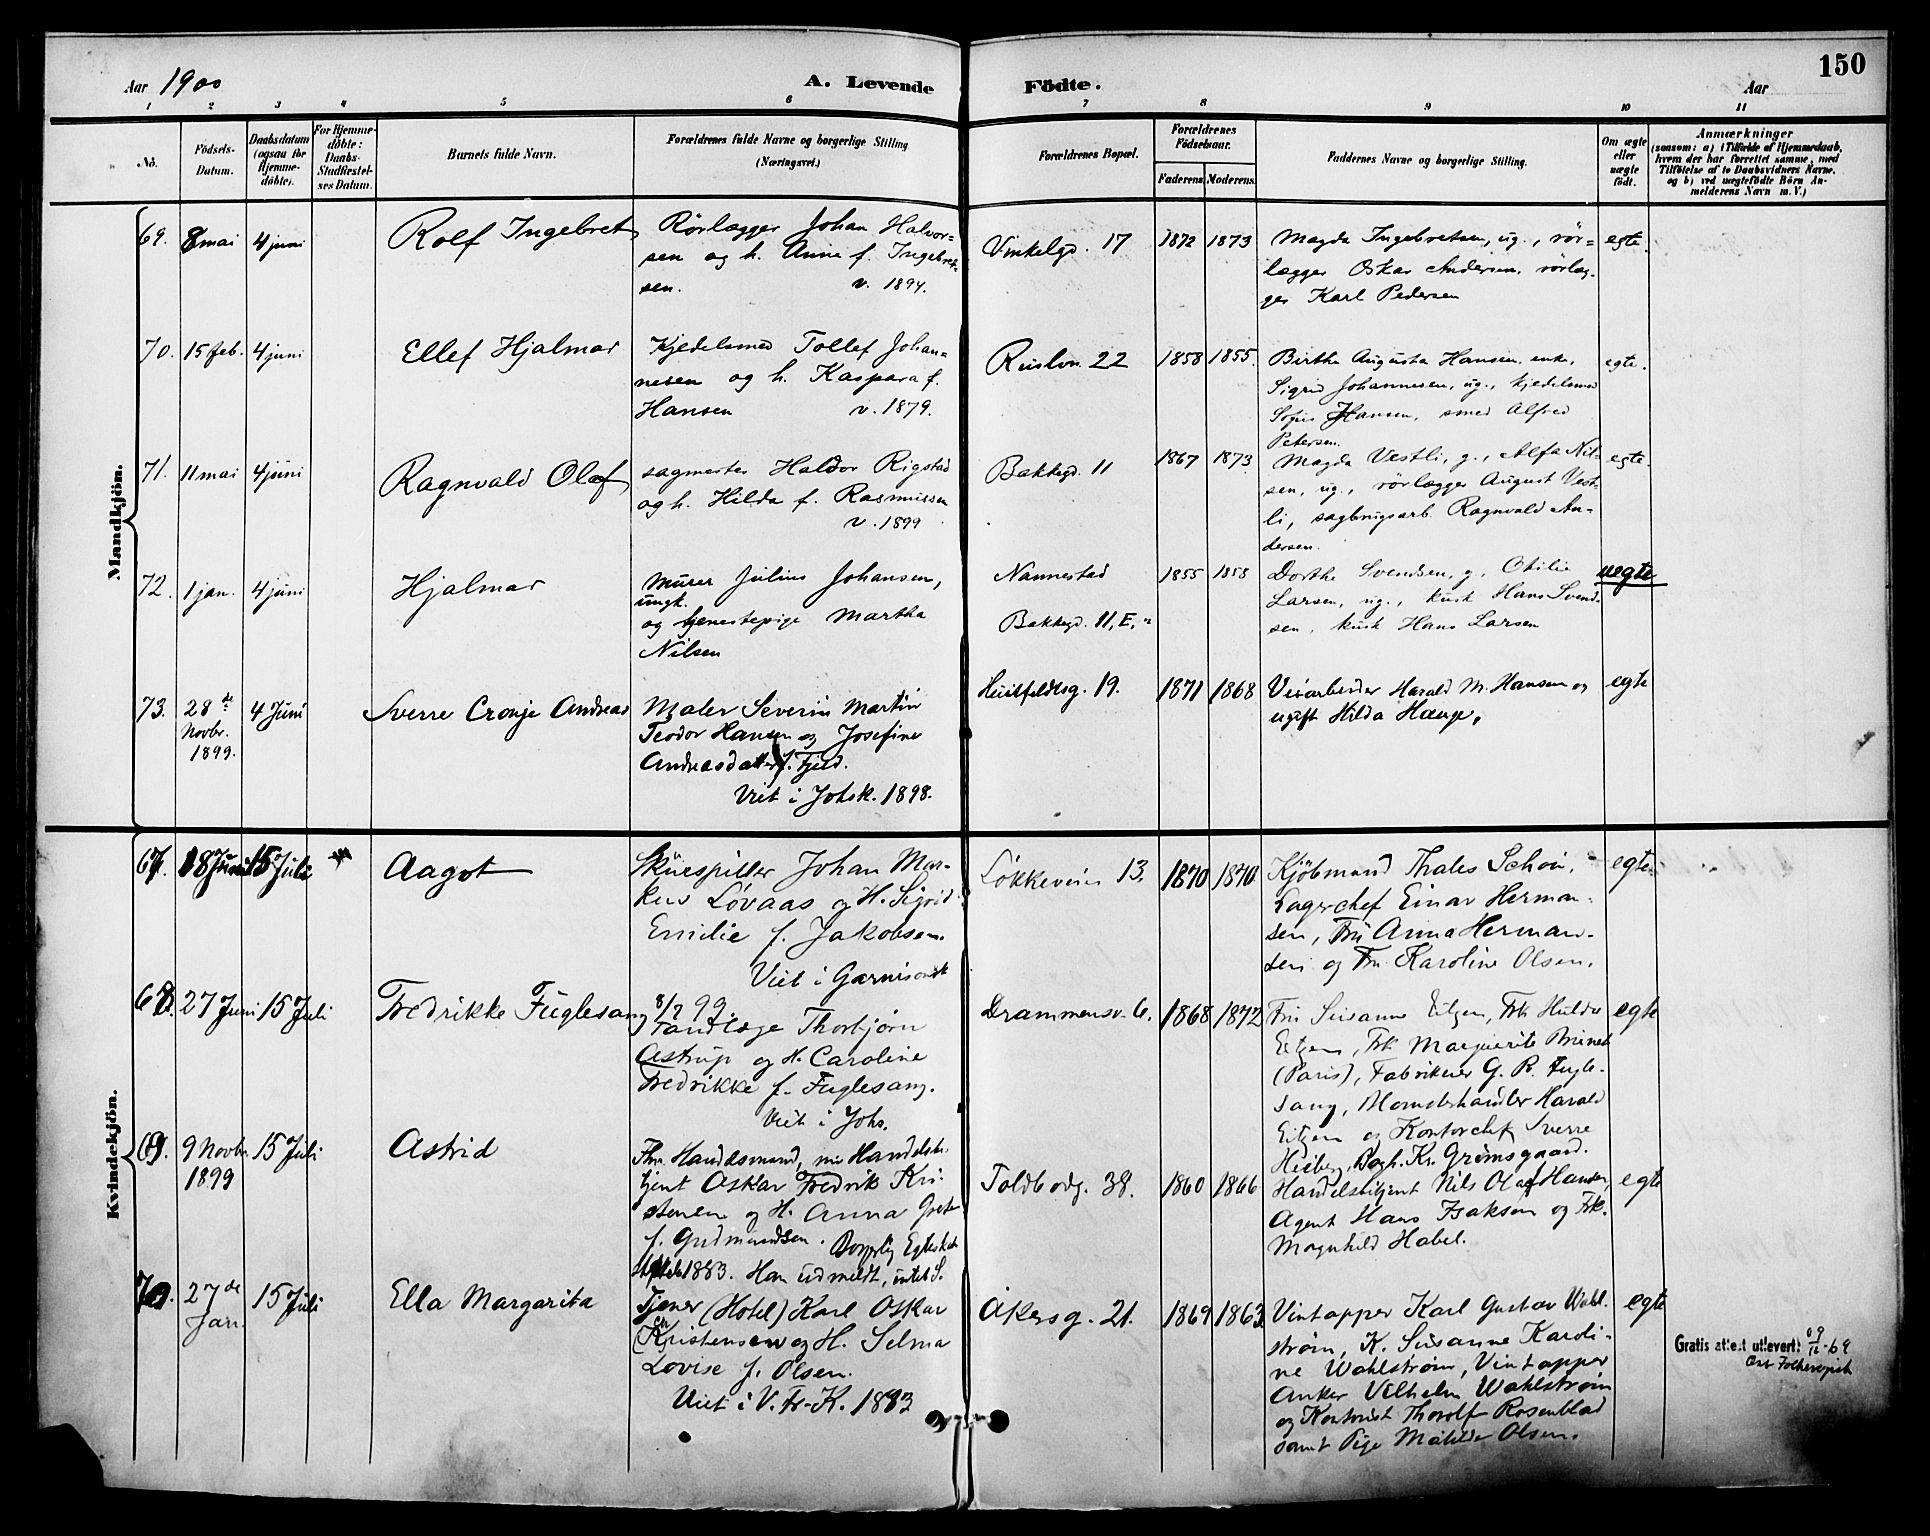 Aar 1900
A. Levende Födte.
Aar
150
1 2 3 4 5 6 7 8 9 10 11
No.
Födsels-
Datum.
Daabsdatum
(ogsaa for
Hjemme-
döbte).
For Hjemme-
döbte:
Daabs-
Stadfæstel-
ses Datum.
Barnets fulde Navn.
Forældrenes fulde Navne og borgerlige Stilling
(Næringsvei.)
Forældrenes Bopæl.
Forældrenes
Födselsaar.
Faderens Moderens
Faddernes Navne og borgerlige Stilling.
Om ægte
eller
uægte
födt.
Anmærkninger
(saasom: a) i Tilfælde af Hjemmedaab,
hvem der har forrettet samme, med
Tilföielse af to Daabsvidners Navne,
og b) ved uægtefödte Börn An-
melderens Navn m. V.)
Mandkjön.
69. 8 mai 4 juni
Rolf Ingebret
Rörlægger Johan Halvor=
sen og h. Anna f. Ingebret-
sen. v. 1894.
Vinkelgd. 17
1872 1873
Magda Ingebretsen, ug., rör=
lægger Oskar Andersen, rörlæg-
ger Karl Pedersen
egte.
70. 15 feb. 4 juni
Ellef Hjalmar
Kjedelsmed Tollef Johan=
nesen og h. Kaspara f.
Hansen v. 1879.
Rusløn. 22
1858 1855.
Birthe Augusta Hansen, enke,
Sigrid Johannesen, ug., kjedelsmed
Sofus Hansen, smed Alfred
Petersen.
egte.
71. 11 mai 4 juni
Ragnvald Olaf
sagmester Haldor Rigstad
og h. Hilda f. Rasmussen
v. 1899
Bakkegd. 11
1867 1873
Magda Vestli, g., Alfa Nil-
sen, ug., rörlægger August Vest-
li, sagbrugsarb. Ragnvald An-
dersen.
egte.
72. 1 jan. 4 juni
Hjalmar
Murer Julius Johansen,
ungk.
og tjenestepige Martha
Nilsen
Nannestad
Bakkegd. 11, E,
1855 1858
Dorthe Svendsen, g., Otilie
Larsen, ug., kusk Hans Svend-
sen, kusk Hans Larsen
uegte
73. 28de Novbr. 1899. 4 Juni
Sverre Cronje Andreas
Maler Severin Martin
Teodor Hansen og Josefine
Andreasdatter f. Fjeld.
Viet i Johsk. 1898.
Huitfeldtsg. 19.
1871 1868
Veiarbeider Harald M. Hansen og
ugift Hilda Hauge.
egte
Kvindekjön.
67. 18 Juni 15 Juli
Aagot
Skuespiller Johan Mar-
kus Lövaas og H. Sigrid
Emilie f. Jakobsen.
Viet i Garnisonsk
8/7 99.
Lökkeveien 13.
1870 1870
Kjöbmand Thales Schön,
Lagerchef Einar Herman-
sen, Fru Anna Herman-
sen og Fru Karoline Olsen.
egte
68. 27 Juni 15 Juli
Fredrikke Fuglesang
Tandlæge Thorbjörn
Astrup og H. Caroline
Fredrikke f. Fuglesang.
Viet i Johs.
Drammensv. 6.
1868 1872
Fru Susanne Eitzen, Frk. Hulda
Eitzen, Frk. Marguerite Brinet
(Paris), Fabrikeier G. R. Fugle-
sang, Blomsterhandler Harald
Eitzen og Kontorchef Sverre
Heiberg, Bogh. Kr. Grimsgaard.
egte
69. 9 Novbr. 1899 15 Juli
Astrid
Fhv. Handelsmand, nu Handelsbe-
tjent Oskar Fredrik Kri-
stensen og H. Anna Grete
f. Gudmundsen. Borgerlig Egteskab
1883. Han udmeldt, intet S.
Toldbodg. 38.
1860 1866
Handelsbetjent Nils Olaf Hansen,
Agent Hans Isaksen og Frk.
Magnhild Habel.
egte
70. 27de Jan. 15 Juli
Ella Margarita
Tjener (Hotel) Karl Oskar
(Ch) Kristensen og H. Selma
Lovise f. Olsen.
Viet i V. Fr-K. 1893
Akersg. 21.
1869 1863
Vintapper Karl Gustav Wahl-
ström, K. Susanne Karoli-
ne Wahlström, Vintapper
Anker Vilhelm Wahlström
og Kontorist Thorolf Rosenblad
samt Pige Matilde Olsen.
egte
Gratis attest utlevert: 09/12-69
Folkeregist